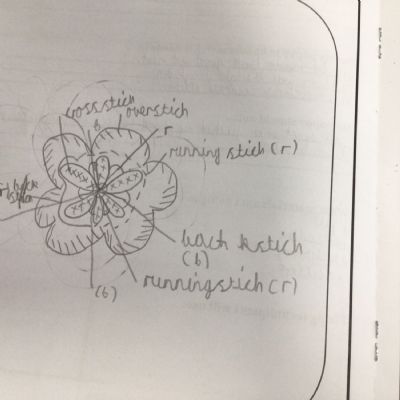 cross stich
overstich
b
r
running stich (r)
back stich
(b)
running stich (r)
(b)